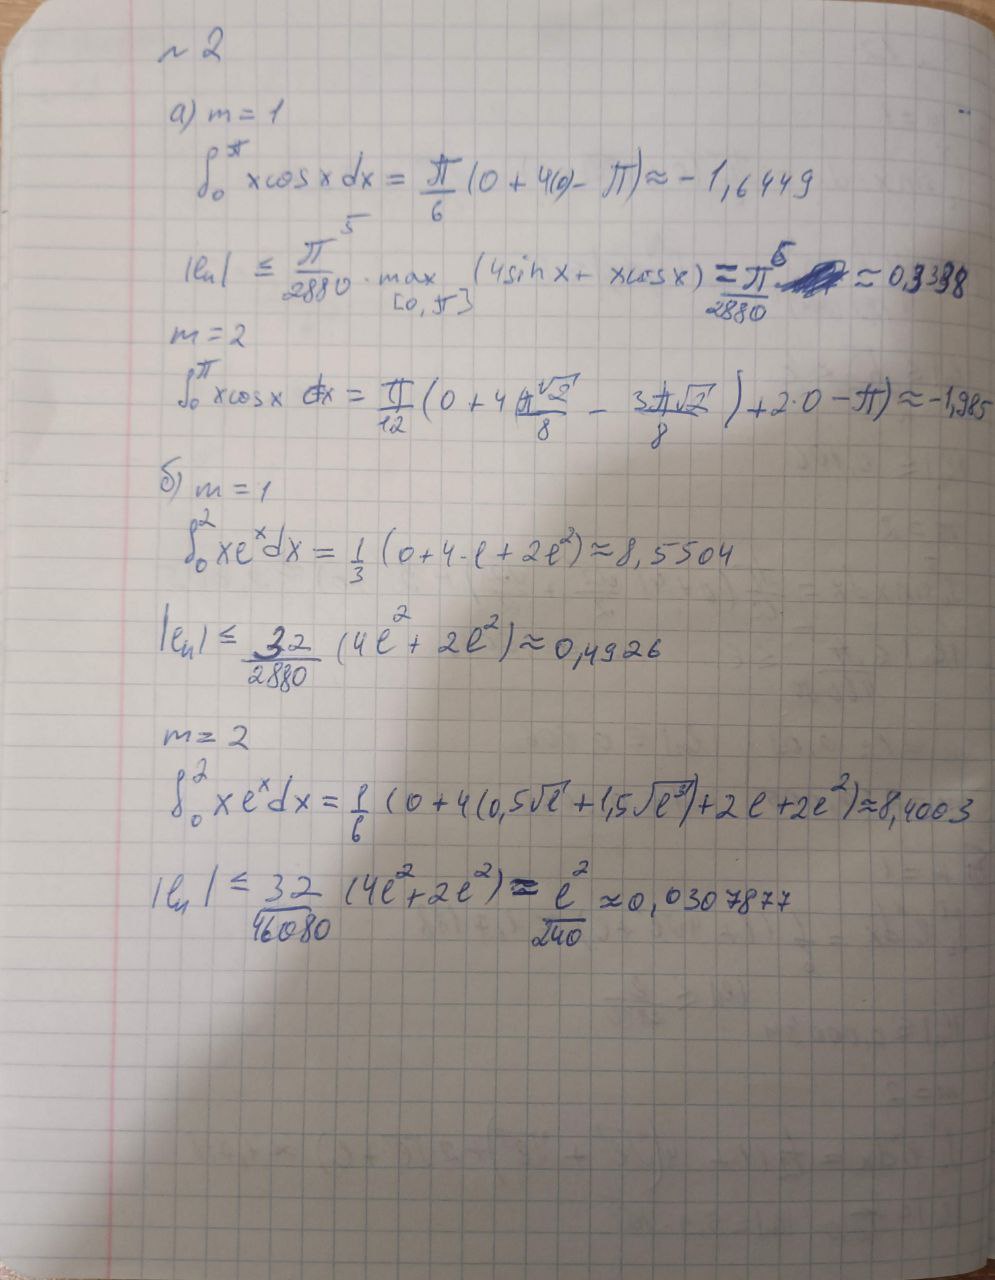 № 2
а) m = 1
∫₀^π x cos x dx = π/6 (0 + 4(0) - π) ≈ -1,6449
|eₙ| ≤ π⁵/2880 · max [0, π] (4 sin x + x cos x) = π⁶/2880 ≈ 0,3338
m = 2
∫₀^π x cos x dx = π/12 (0 + 4 π√2/8 - 3π√2/8) + 2·0 - π) ≈ -1,985
б) m = 1
∫₀² x eˣ dx = 1/3 (0 + 4·e + 2e²) ≈ 8,5504
|eₙ| ≤ 32/2880 (4e² + 2e²) ≈ 0,4926
m = 2
∫₀² x eˣ dx = 1/6 (0 + 4(0,5√e + 1,5√e³) + 2e + 2e²) ≈ 8,4003
|eₙ| ≤ 32/46080 (4e² + 2e²) = e²/240 ≈ 0,0307877